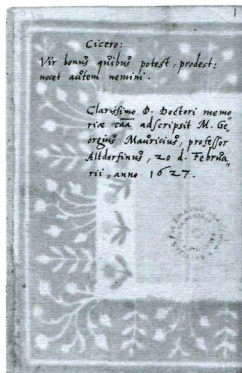 Cicero:
Vir bonus quibus potest, prodest:
nocet autem nemini.
Clarissimo D. Doctori memo
riæ caa adscripsit M. Ge
orgius Mauricius, professor
Altdorfinus, 20 d. Februa
rii, anno 1627.